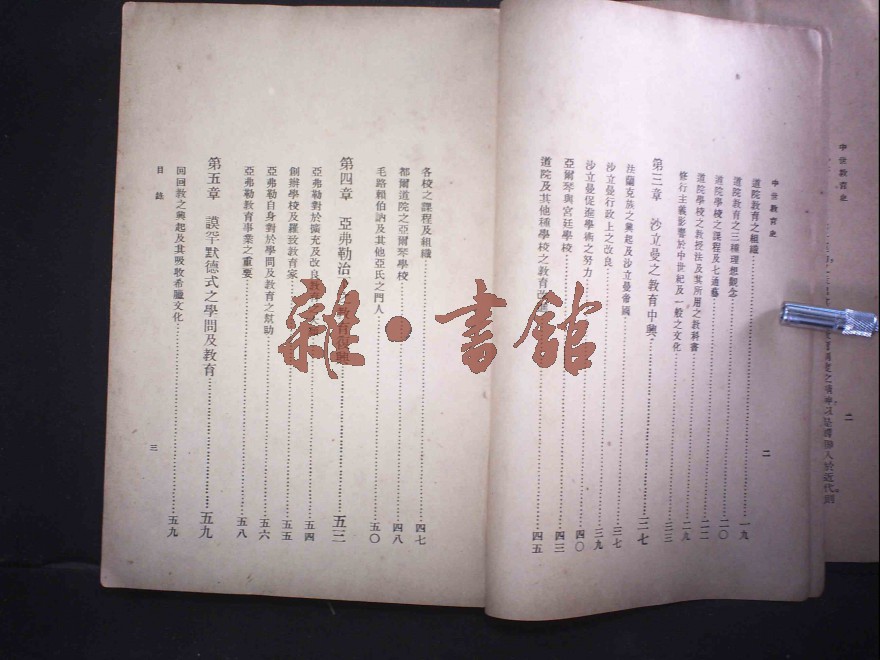 中世教育史
二
中世教育史
道院教育之組織……一九
道院教育之三種理想觀念……二〇
道院學校之課程及七通藝……二二
道院學校之教授法及其所用之教科書……二九
修行主義影響於中世紀及一般之文化……三三
第三章 沙立曼之教育中興……三七
法蘭克族之興起及沙立曼帝國……三七
沙立曼行政上之改良……三九
沙立曼促進學術之努力……四〇
亞爾琴與宮廷學校……四三
道院及其他種學校之教育……四五
二
各校之課程及組織……四七
都爾道院之亞爾琴學校……四八
毛路賴伯訥及其他亞氏之門人……五〇
第四章 亞弗勒治……教育復興……五三
亞弗勒對於擴充及改良教育……五四
創辦學校及羅致教育家……五五
亞弗勒自身對於學問及教育之幫助……五六
亞弗勒教育事業之重要……五八
第五章 謨罕默德式之學問及教育……五九
回回教之興起及其吸收希臘文化……五九
目錄
三
雜·書館